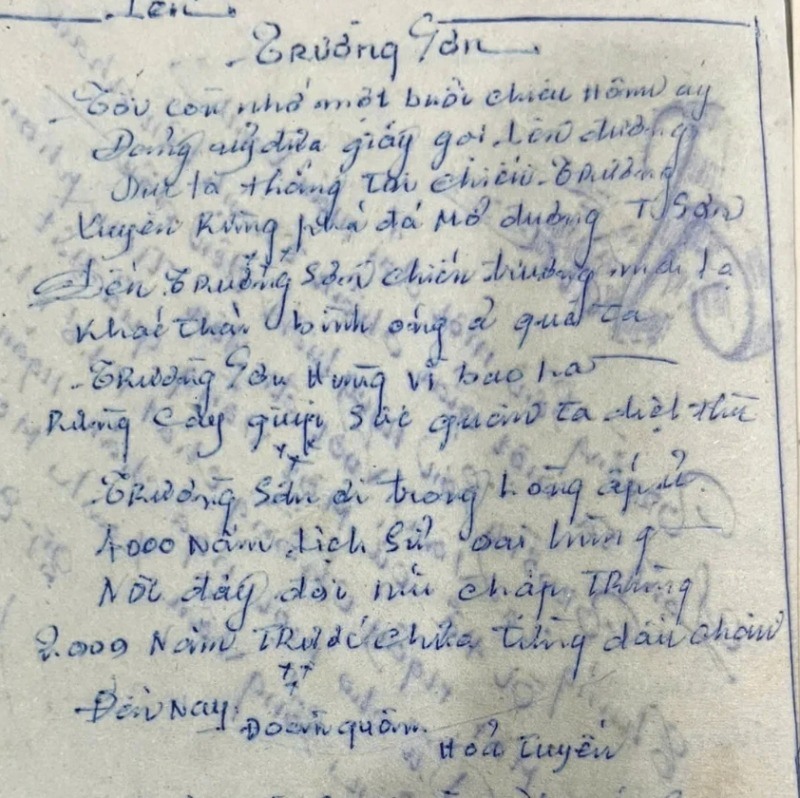 Trường Sơn
Tôi còn nhớ một buổi chiều Hôm ấy
Đảng ủy đưa giấy gọi Lên đường
là tháng chiến Trường
Xuyên Rừng phá đá Mở đường T. Sơn
Đến Trường Sơn chiến trường mới lạ
Khác thái bình quá ta
Trường Sơn Hùng vĩ bao la
Rừng cây quân ta diệt thù
Trường Sơn đi trong Lòng ấp ủ
4000 Năm Lịch Sử oai hùng
Nơi đây đồi núi chập Trùng
2.000 Năm TRước chưa từng dấu chân
Đến Nay Đoàn quân
Hỏa Tuyến